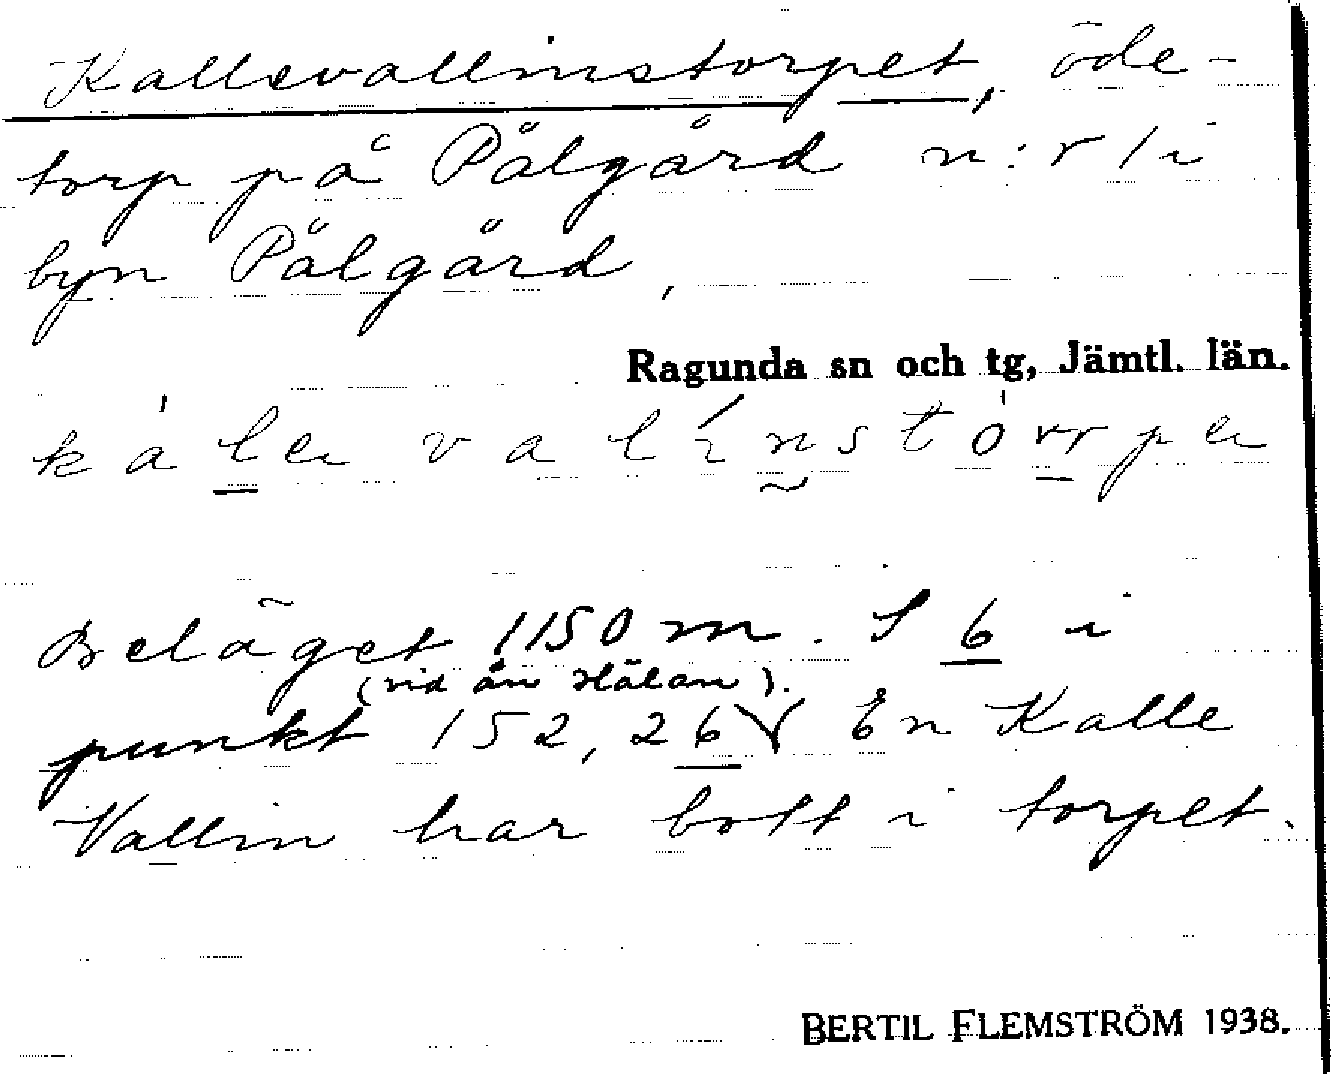 Kallevallinstorpet, öde-
torp på Pålgård n:r 1 i
byn Pålgård,
Ragunda sn och tg, Jämtl. län.
Beläget 1150 m. S 6 i
(vid ån Hälan).
punkt 152, 26 En Kalle
Vallin har bott i torpet.
BERTIL FLEMSTRÖM 1938.